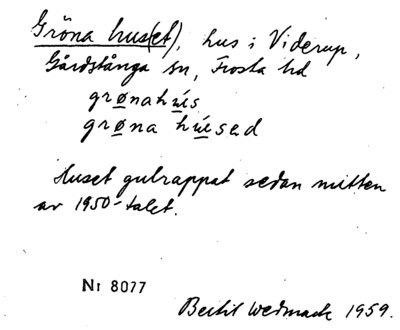 Gröna hus(et), hus i Viderup,
Gårdstånga sn, Frosta hd
grønahús
grøna húsed
Huset gulrappat sedan mitten
av 1950-talet.
Nr 8077
Bertil Wedmark 1959.